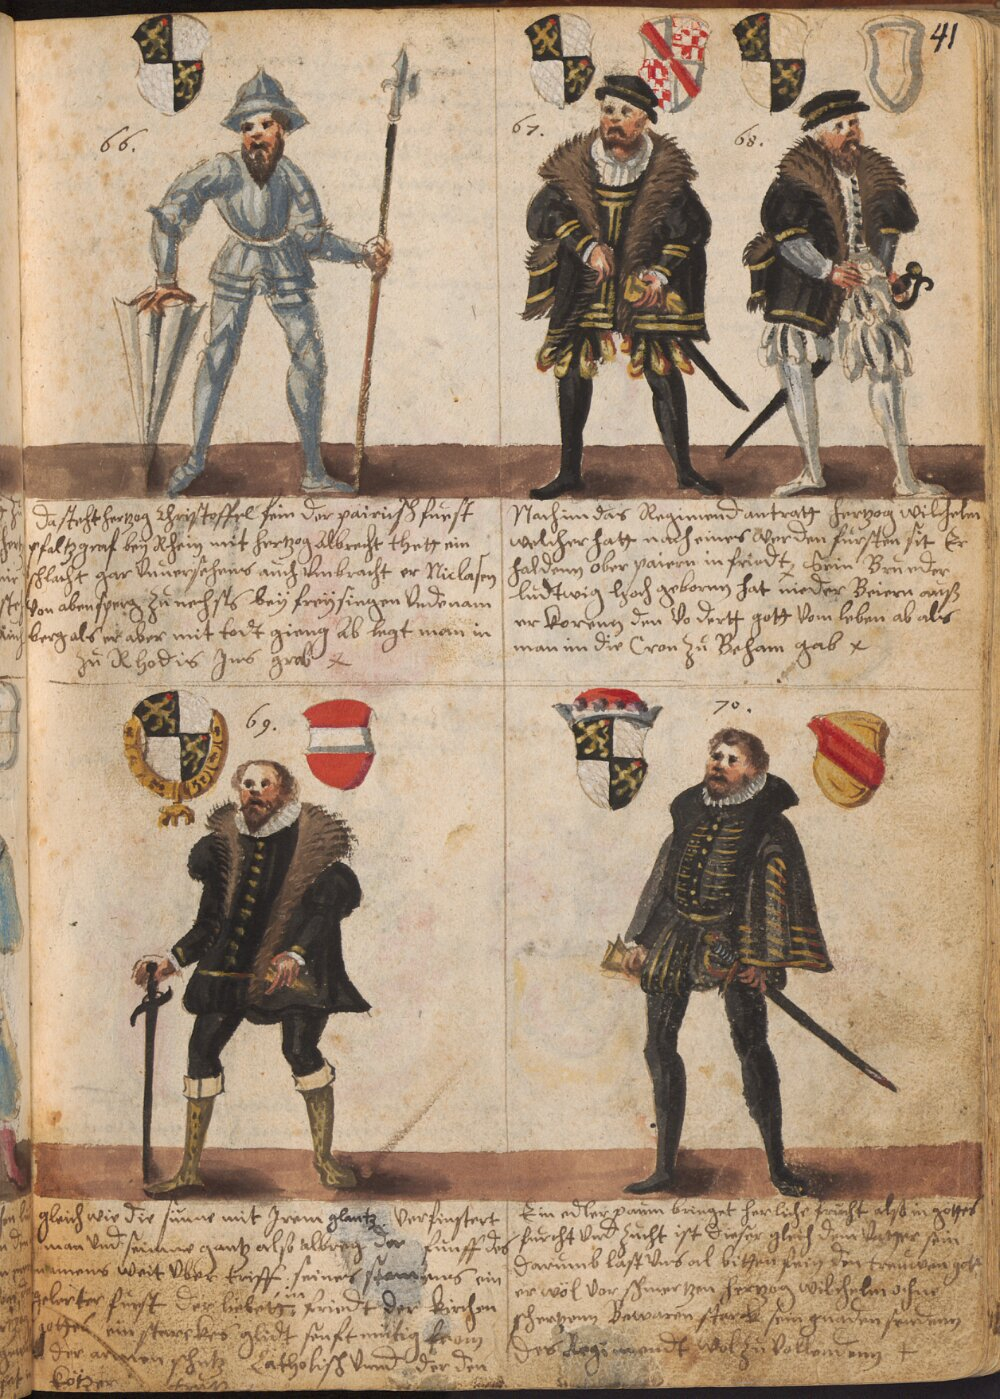 41
66.
67.
68.
da steht hertzog Christoffel sein der pairisch fürst
pfaltzgraf beÿ Rhein mit hertzog Albrecht thett ein
schlacht gar unversehens auch umbracht er Niclasen
von abensperg zu nechsts beÿ freÿsingen
berg als er aber mit todt gieng ab legt man in
zu Rhodis Ins grab
Nach im das Regimend antratt hertzog wilhelm
welcher hatt nach eines werden fürsten sit Er
halden ober paiern in friedt Sein Brueder
ludtwig hoch geborn hat nieder Beiern auß
er koren den vodert gott vom leben ab als
man im die Cron zu Beham gab
69.
70.
gleich wie die sunne mit Irem glantz verfinstert
man und sterne gantz also Albrecht der fünff des
namens weit über triff seines stammens ein
gelerter fürst der liebett friedt der Kirchen
gottes ein starckes glidt senftmütig from
der armen schutz Catholisch und der den
Kötzer trutz
Ein edler paum bringet herliche fricht alß in gottes
furcht und zucht ist dieser gleich dem vatter sein
darumb last uns al bitten fein den treuwen gott
er wöl vor schmertzen hertzog wilhelm ohne
schertzen Bewaren starck sein gnaden
des Regimendt wol zu vollenden